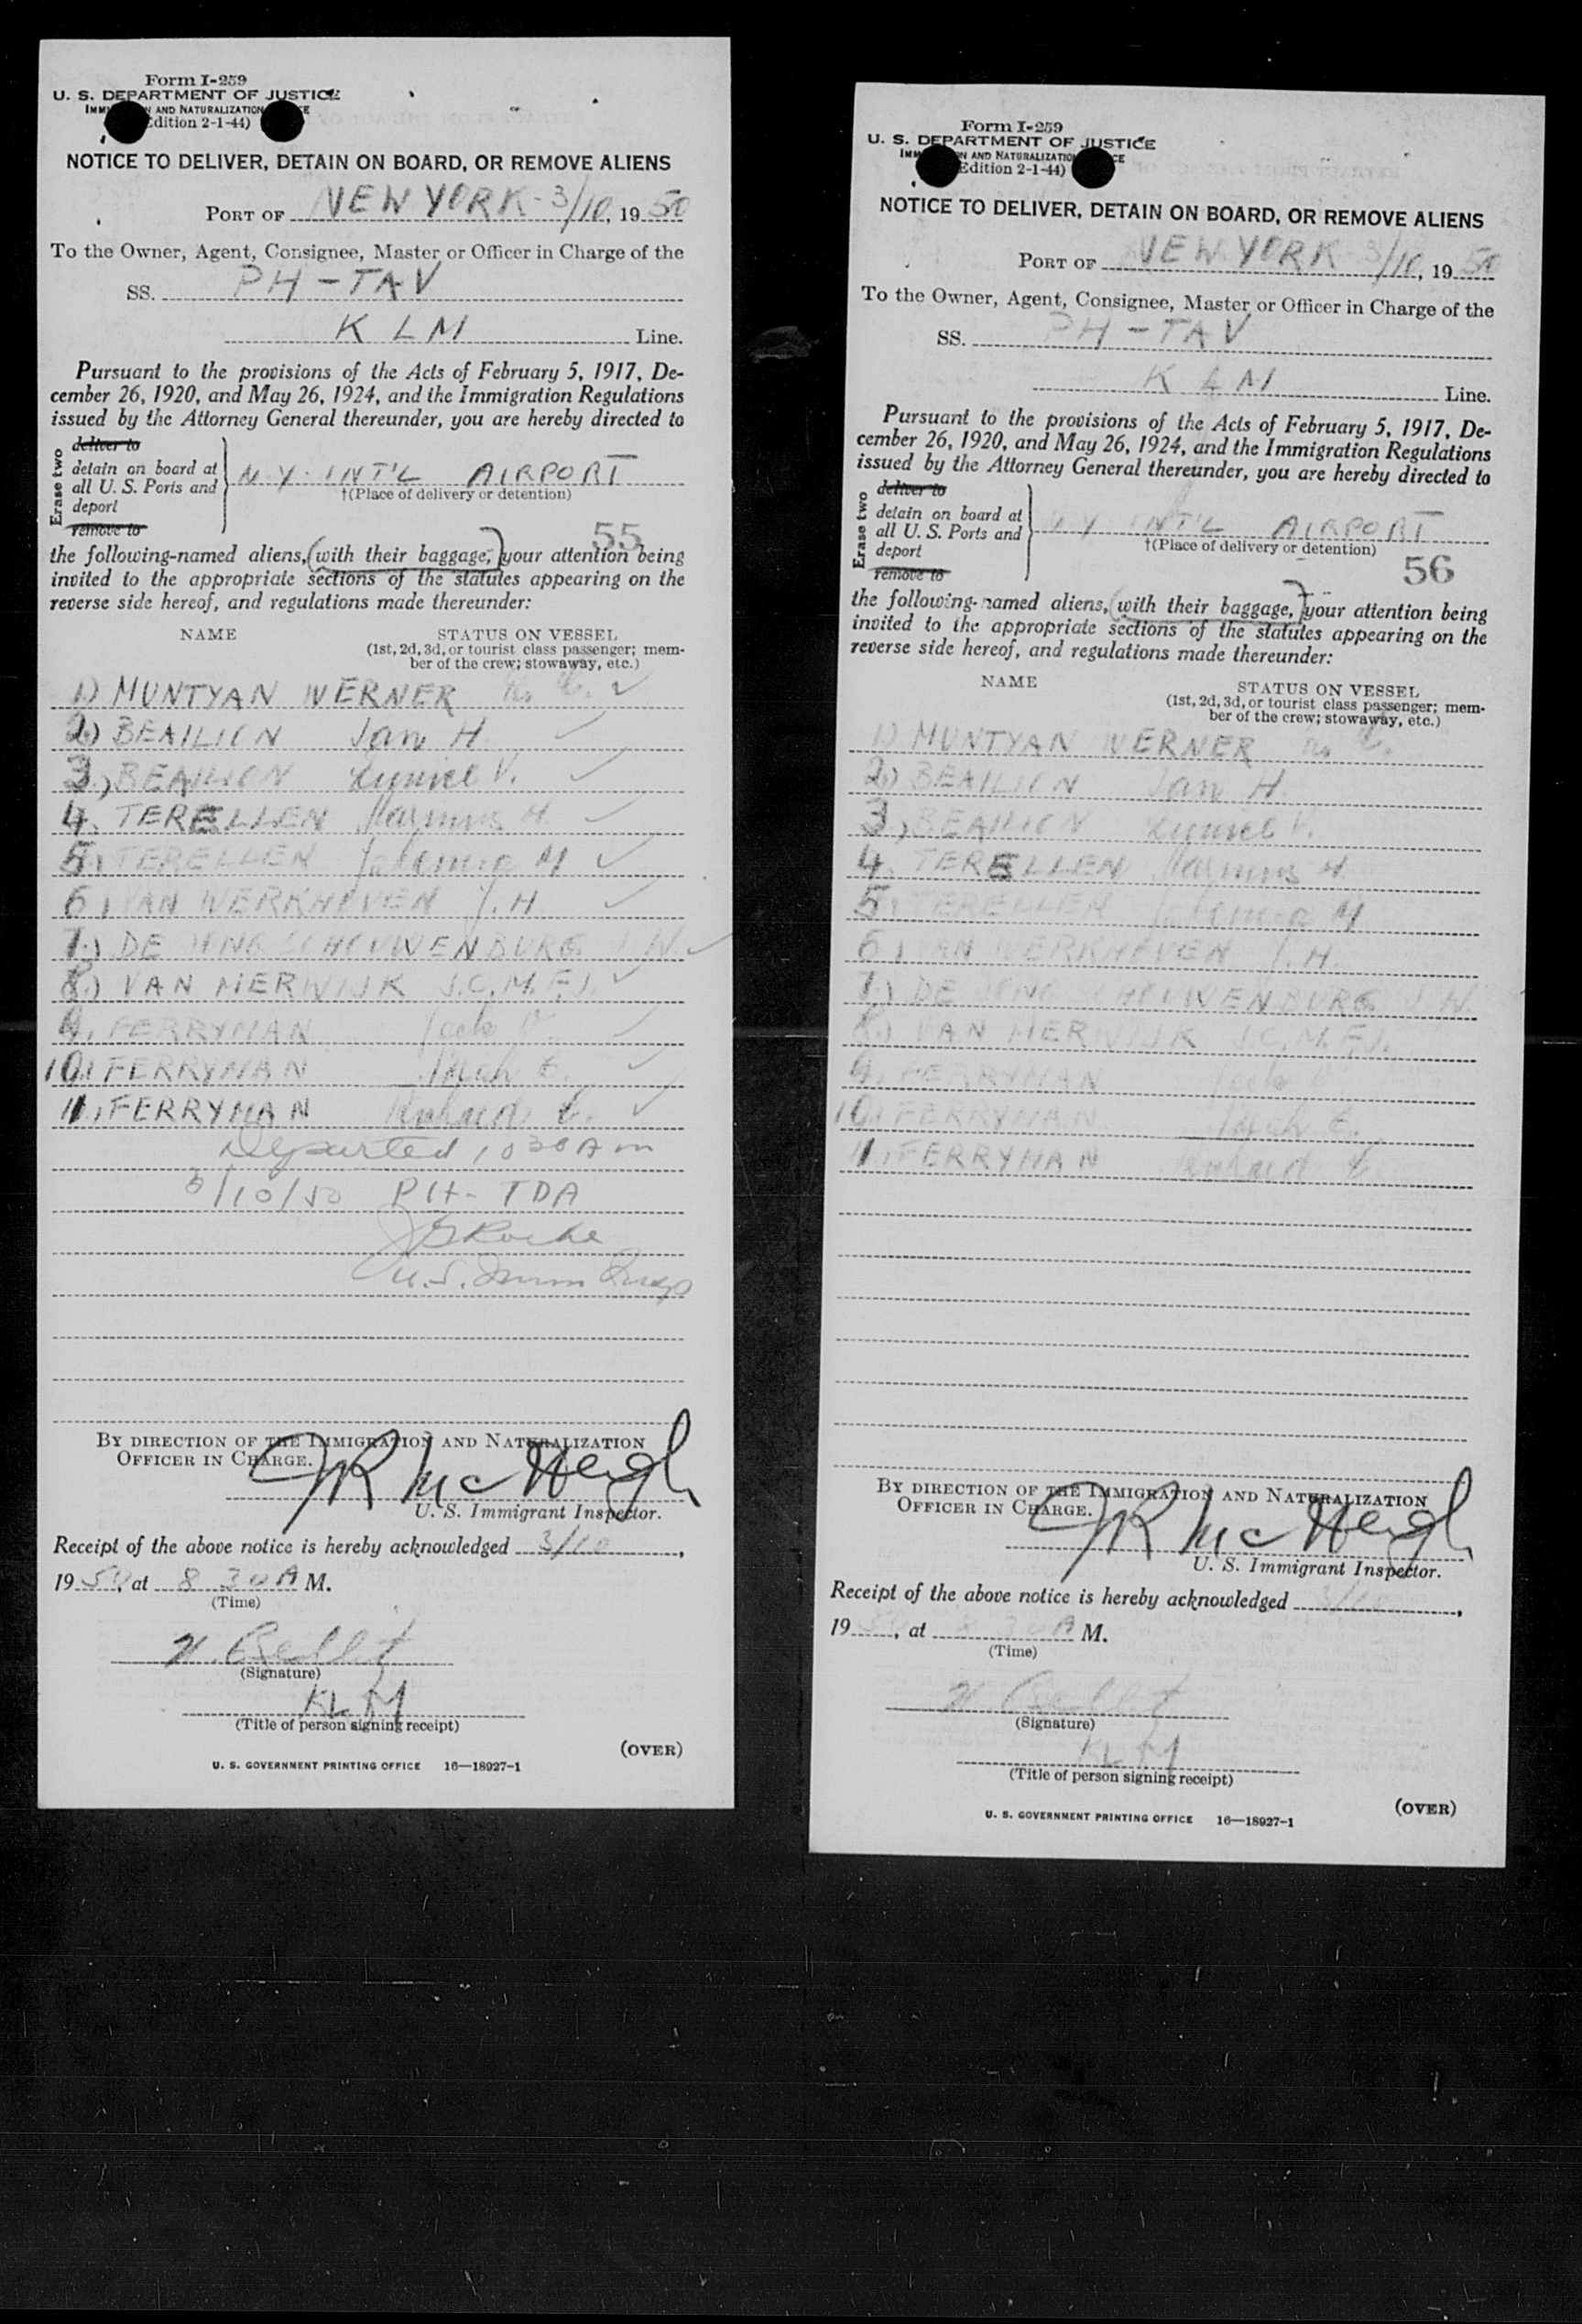 Form I-259
U. S. DEPARTMENT OF JUSTICE
AND NATURALIZATION
Edition 2-1-44)
NOTICE TO DELIVER, DETAIN ON BOARD, OR REMOVE ALIENS
PORT OF NEW YORK - 3/10, 1950
To the Owner, Agent, Consignee, Master or Officer in Charge of the
SS. PH-TAV
KLM Line.
Pursuant to the provisions of the Acts of February 5, 1917, De-
cember 26, 1920, and May 26, 1924, and the Immigration Regulations
issued by the Attorney General thereunder, you are hereby directed to
Erase two
deliver to
detain on board at
all U. S. Ports and
deport
remove to
N.Y. INT'L AIRPORT
†(Place of delivery or detention)
55
the following-named aliens, (with their baggage,) your attention being
invited to the appropriate sections of the statutes appearing on the
reverse side hereof, and regulations made thereunder:
NAME STATUS ON VESSEL
(1st, 2d, 3d, or tourist class passenger; mem-
ber of the crew; stowaway, etc.)
1) MUNTYAN WERNER ✓
2) BEAILION Jan H. ✓
3.) BEAILION V. ✓
4. TERELLEN H. ✓
5. TERELLEN M ✓
6) VAN WERKHOVEN J.H. ✓
7.) DE JONG SCHOUWENBURG J.N. ✓
8.) VAN MERWIJK J.C.M.F.J. ✓
9. FERRYMAN ✓
10. FERRYMAN E. ✓
11. FERRYMAN E. ✓
Departed 10 30 A m
3/10/50 PH-TDA
J G Roche
U.S. Imm Insp
BY DIRECTION OF THE IMMIGRATION AND NATURALIZATION
OFFICER IN CHARGE.
JR McHeigh
U. S. Immigrant Inspector.
Receipt of the above notice is hereby acknowledged 3/10,
1950, at 8 30 A M.
(Time)
(Signature)
KLM
(Title of person signing receipt)
(OVER)
U. S. GOVERNMENT PRINTING OFFICE 16—18927-1
Form I-259
U. S. DEPARTMENT OF JUSTICE
AND NATURALIZATION
Edition 2-1-44)
NOTICE TO DELIVER, DETAIN ON BOARD, OR REMOVE ALIENS
PORT OF NEW YORK 3/10, 1950
To the Owner, Agent, Consignee, Master or Officer in Charge of the
SS. PH-TAV
KLM Line.
Pursuant to the provisions of the Acts of February 5, 1917, De-
cember 26, 1920, and May 26, 1924, and the Immigration Regulations
issued by the Attorney General thereunder, you are hereby directed to
Erase two
deliver to
detain on board at
all U. S. Ports and
deport
remove to
N Y INT'L AIRPORT
†(Place of delivery or detention)
56
the following-named aliens, (with their baggage,) your attention being
invited to the appropriate sections of the statutes appearing on the
reverse side hereof, and regulations made thereunder:
NAME STATUS ON VESSEL
(1st, 2d, 3d, or tourist class passenger; mem-
ber of the crew; stowaway, etc.)
1) MUNTYAN WERNER
2) BEAILION Jan H.
3.) BEAILION V.
4. TERELLEN H.
5. TERELLEN M
6) VAN WERKHOVEN J.H.
7.) DE JONG SCHOUWENBURG J.N.
8.) VAN MERWIJK J.C.M.F.J.
9. FERRYMAN
10. FERRYMAN E.
11. FERRYMAN E.
BY DIRECTION OF THE IMMIGRATION AND NATURALIZATION
OFFICER IN CHARGE.
JR McHeigh
U. S. Immigrant Inspector.
Receipt of the above notice is hereby acknowledged 3/10,
19 , at 30 A M.
(Time)
(Signature)
KLM
(Title of person signing receipt)
(OVER)
U. S. GOVERNMENT PRINTING OFFICE 16—18927-1